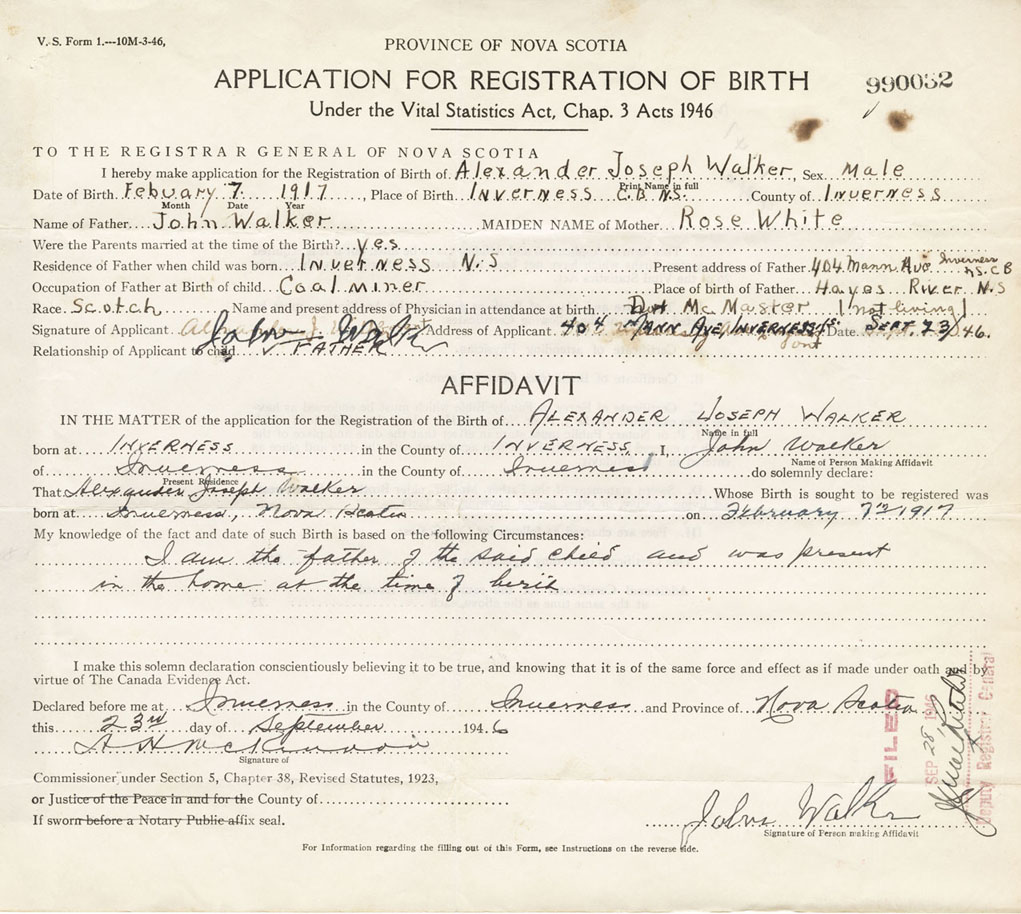 V. S. Form 1.---10M-3-46,
PROVINCE OF NOVA SCOTIA
APPLICATION FOR REGISTRATION OF BIRTH
990052
Under the Vital Statistics Act, Chap. 3 Acts 1946
TO THE REGISTRAR GENERAL OF NOVA SCOTIA
I hereby make application for the Registration of Birth of Alexander Joseph Walker, Sex Male
Print Name in full
Date of Birth Febuary 7 1917, Place of Birth Inverness C.B N.S. County of Inverness
Month Date Year
Name of Father John Walker MAIDEN NAME of Mother Rose White
Were the Parents married at the time of the Birth? yes
Residence of Father when child was born Inverness N.S Present address of Father 404 Mann Ave Inverness N.S. C B
Occupation of Father at Birth of child Coal miner Place of birth of Father Hayes River N.S
Race Scotch Name and present address of Physician in attendance at birth McMaster (not living)
Signature of Applicant John Walker Address of Applicant 404 MANN AVE, INVERNESS Date SEPT. 23 1946.
Relationship of Applicant to child FATHER
AFFIDAVIT
IN THE MATTER of the application for the Registration of the Birth of ALEXANDER JOSEPH WALKER
Name in full
born at INVERNESS in the County of INVERNESS I, John Walker
Name of Person Making Affidavit
of Inverness in the County of Inverness do solemnly declare:
Present Residence
That Alexander Joseph Walker Whose Birth is sought to be registered was
born at Inverness, Nova Scotia on February 7th 1917
My knowledge of the fact and date of such Birth is based on the following Circumstances:
I am the father of the said child and was present
in the home at the time of birth
I make this solemn declaration conscientiously believing it to be true, and knowing that it is of the same force and effect as if made under oath and by
virtue of The Canada Evidence Act.
Declared before me at Inverness in the County of Inverness and Province of Nova Scotia
this 23rd day of September 1946
Signature of
Commissioner under Section 5, Chapter 38, Revised Statutes, 1923,
or Justice of the Peace in and for the County of
If sworn before a Notary Public affix seal.
John Walker
Signature of Person making Affidavit
FILED
SEP 28 1946
Deputy Registrar General
For Information regarding the filling out of this Form, see Instructions on the reverse side.